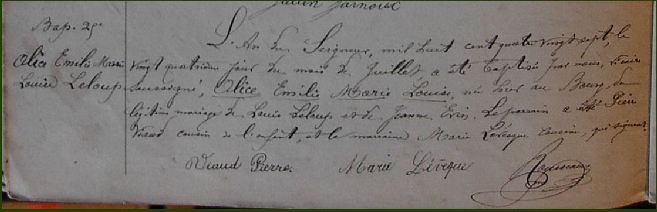 Julien Jarnoux
Bap. 29e
Alice Emilie Marie
Louise Leloup
L'An du Seigneur, mil huit cent quatre vingt sept, le
vingt quatrième jour du mois de Juillet, a été baptisée par nous, vicaire
soussigné, Alice Emilie Marie Louise, née hier au Bourg, du
légitime mariage de Louis Leloup et de Jeanne Eris. Le parrain a été Pierre
Viaud cousin de l'enfant, et la marraine Marie Lévesque cousine, qui signent
Viaud Pierre. Marie Lévêque